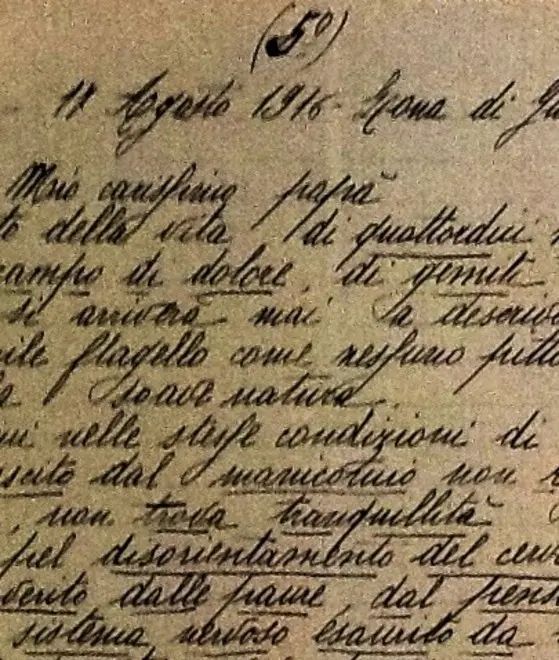 (5º)
18 Agosto 1916 - Zona di
Mio carissimo papà
della vita di quattordici
campo di dolore, di gemiti
si arriverà mai a
flagello come nessuno
soave natura.
nelle stesse condizioni di
dal manicomio non
, non trova tranquillità
pel disorientamento del
dalle paure, dal
sistema nervoso esaurito da